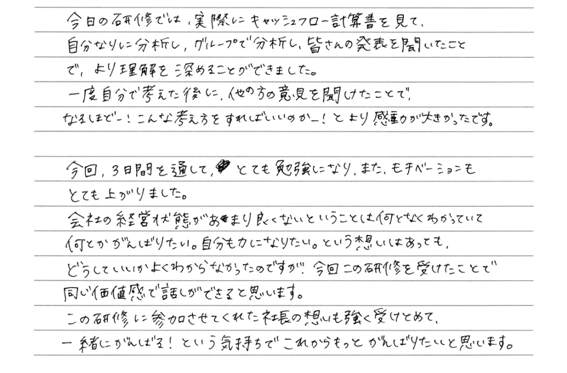 今日の研修では、実際にキャッシュフロー計算書を見て、
自分なりに分析し、グループで分析し、皆さんの発表を聞いたこと
で、より理解を深めることができました。
一度自分で考えた後に、他の方の意見を聞けたことで、
なるほどー！こんな考え方をすればいいのかー！とより感動が大きかったです。
今回、3日間を通して、とても勉強になり、また、モチベーションも
とても上がりました。
会社の経営状態があまり良くないということは何となくわかっていて
何とかがんばりたい。自分も力になりたい。という想いはあっても、
どうしていいかよくわからなかったのですが、今回この研修を受けたことで
同じ価値感で話しができると思います。
この研修に参加させてくれた社長の想いも強く受けとめて、
一緒にがんばる！という気持ちでこれからもっとがんばりたいと思います。